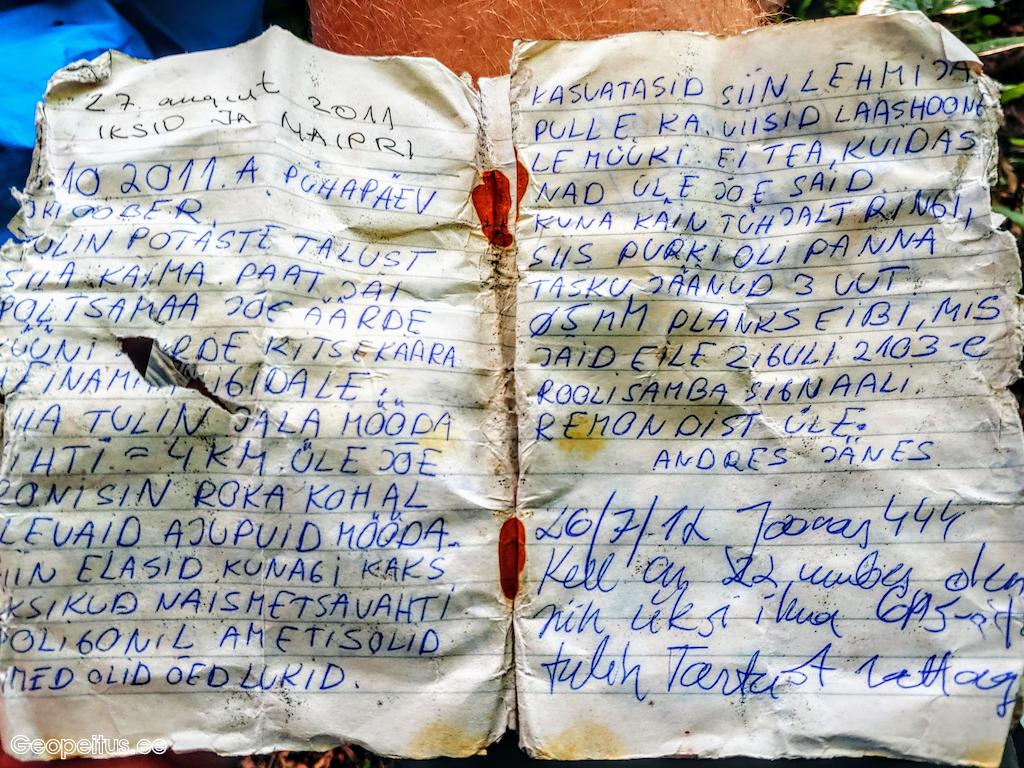 27. august 2011
IKSID JA MAIPRI
.10 2011.A. PÜHAPÄEV
OKTOOBER.
TULIN POTASTE TALUST
SIIA KAIMA. PAAT JÄI
PÕLTSAMAA JÕE ÄÄRDE
KÜÜNI KITSEKAARA.
TULIN JALA MÖÖDA
SIHTI. = 4 KM ÜLE JÕE
RONISIN ROKA KOHAL
LEVAID AJUPUID MÖÖDA.
SIIN ELASID KUNAGI KAKS
ÜKSIKUD NAISMETSAVAHTI
POLIGONIL AMETISOLID
NIMED OLID ÕED LUKID.
KASVATASID SIIN LEHMI JA
PULLE. KA. VIISID LAASHOONE
LE MÜÜKI. EI TEA, KUIDAS
NAD ÜLE JÕE SAID.
KUNA KÄIN TÜHJALT RINGI,
SIIS PURKI OLI PANNA
TASKU JÄÄNUD 3 UUT
Ø5MM PLANKSEIBI, MIS
JÄID EILE ZIGULI 2103-e
ROOLISAMBA SIGNAALI.
REMONDIST ÜLE.
ANDRES JÄNES
26/7/12 Joonas 444
Kell on 22, umbes olen
siin üksi ilma GPS-ita
tulin Tartust rattaga